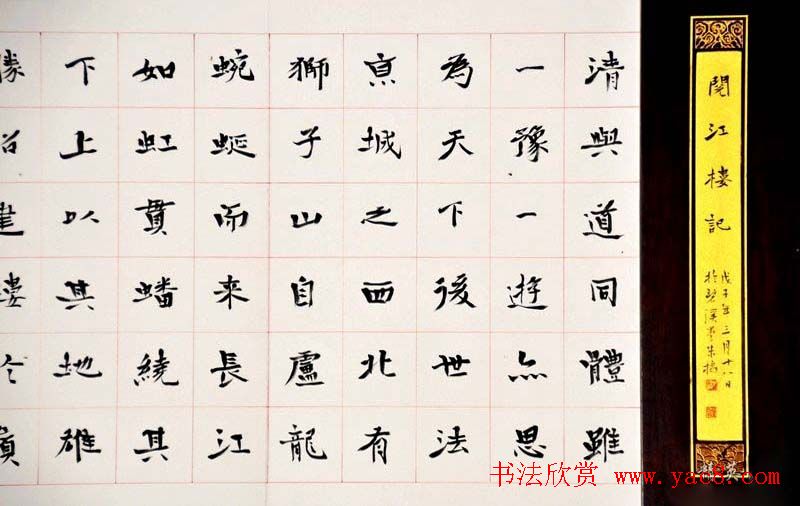 閱江樓記
戊子年三月十八日
清與道同體雖
一豫一遊亦思
為天下後世法
京城之西北有
獅子山自盧龍
蜿蜒而来長江
如虹貫蟠繞其
下上以其地雄
书法欣赏 www.yac8.com